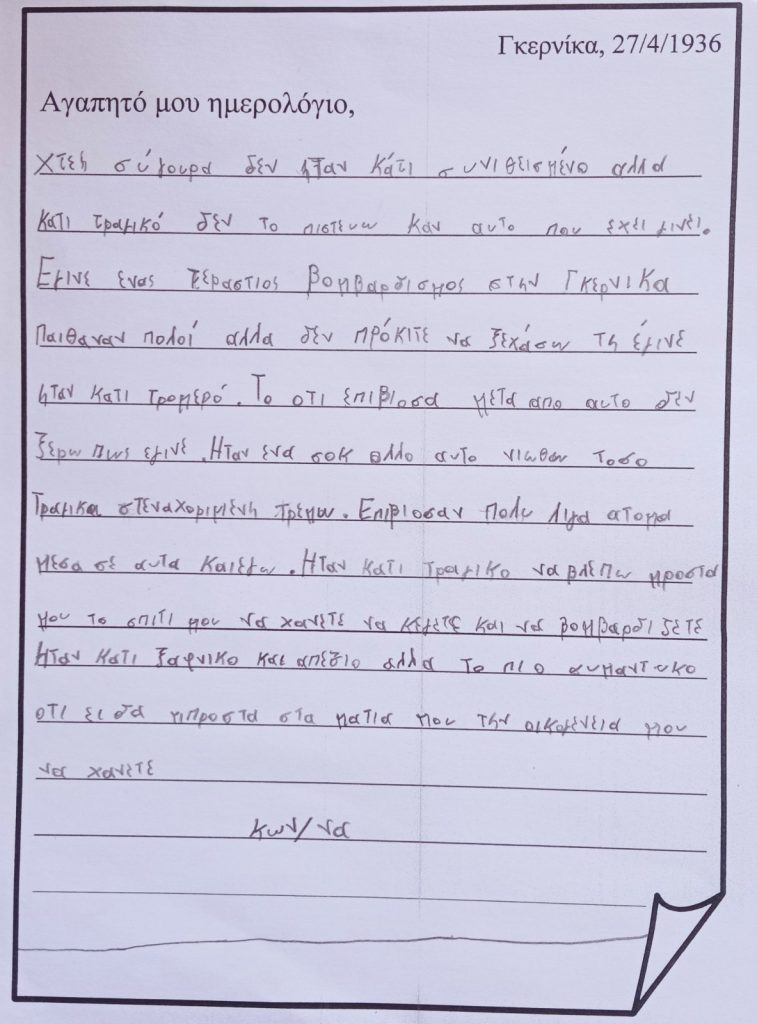 Γκερνίκα, 27/4/1936
Αγαπητό μου ημερολόγιο,
Χτες σύγουρα δεν ήταν κάτι συνιθεισμένο αλλα
κατι τραγικό δεν το πιστευω καν αυτο που εχει γινει.
Εγινε ενας τεραστιος βομβαρδισμος στην Γκερνικα
Παιθαναν πολοί αλλα δεν πρόκιτε να ξεχάσω τη έγινε
ηταν κατι τρομερό. Το οτι επιβιοσα μετα απο αυτο δεν
ξερω πως εγινε. Ηταν ενα σοκ ολλο αυτο νιωθω τοσο
Τραγικα στεναχοριμενη τρεμω. Επιβιοσαν πολυ λιγα ατομα
μεσα σε αυτα και εγω. Ηταν κατι τραγικο να βλεπω μροστα
μου το σπιτι μου να χανετε να κεγετε και να βομβαρδιζετε
Ηταν κατι ξαφνικο και απεσιο αλλα το πιο συμαντικο
οτι ειδα μπροστα στα ματια μου την οικογενεια μου
να χανετε
Κων/να